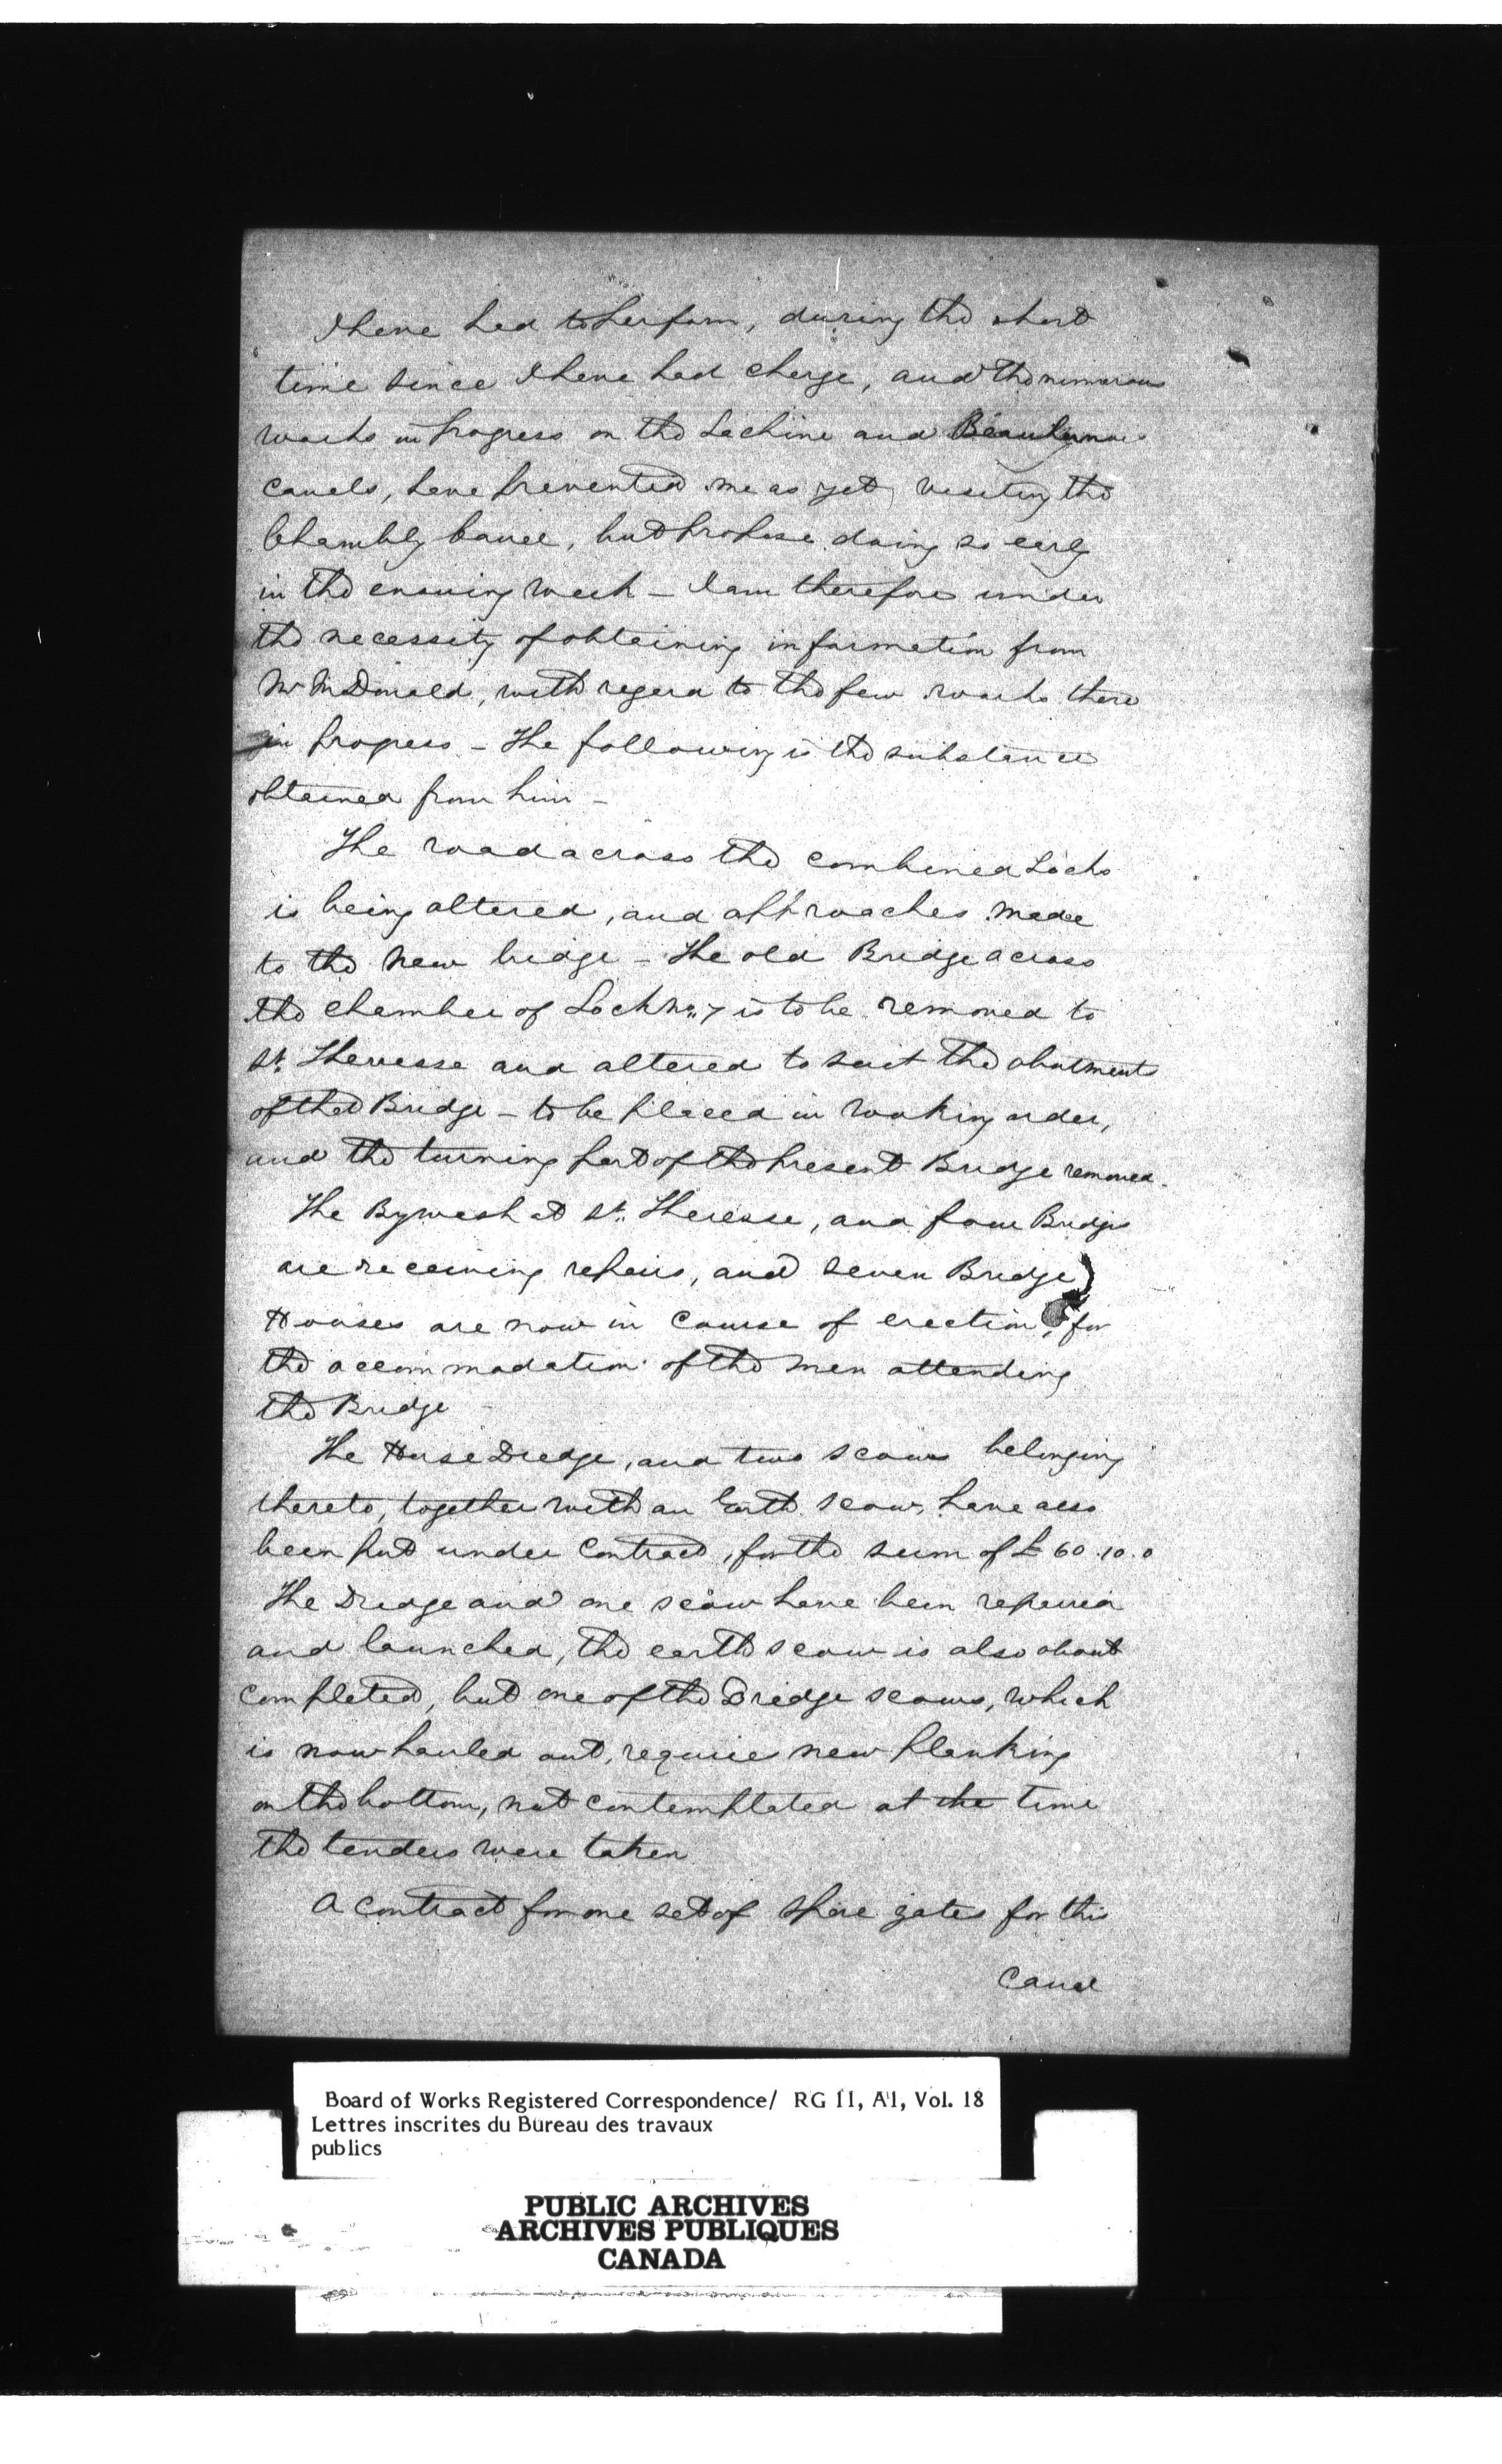 I have had to perform, during the short
time since I have had charge, and the numerous
works in progress on the Lachine and Beauharnois
canals, have prevented me as yet, visiting the
Chambly Canal, but propose doing so early
in the ensuing week – I am therefore under
the necessity of obtaining information from
Mr McDonald, with regard to the few works there
in progress – The following is the substance
obtained from him –
The road across the combined Locks
is being altered, and approaches made
to the new bridge – The old Bridge across
the chamber of Lock No. 7 is to be removed to
St. Theresse and altered to suit the abutments
of that Bridge – to be placed in working order,
and the turning part of the present Bridge removed.
The Bywash at St. Theresse, and four Bridges
are receiving repairs, and seven Bridge
Houses are now in course of erection, for
the accommodation of the men attending
the Bridge
The Horse Dredge, and two scows belonging
thereto, together with an Earth scow, have also
been put under contract, for the sum of £60.10.0
The Dredge and one scow have been repaired
and launched, the earth scow is also about
completed, but one of the Dredge scows, which
is now hauled out, requires new planking
on the bottom, not contemplated at the time
the tenders were taken
A contract for one set of spare gates for this
Canal
Board of Works Registered Correspondence/ RG 11, A1, Vol. 18
Lettres inscrites du Bureau des travaux
publics
PUBLIC ARCHIVES
ARCHIVES PUBLIQUES
CANADA